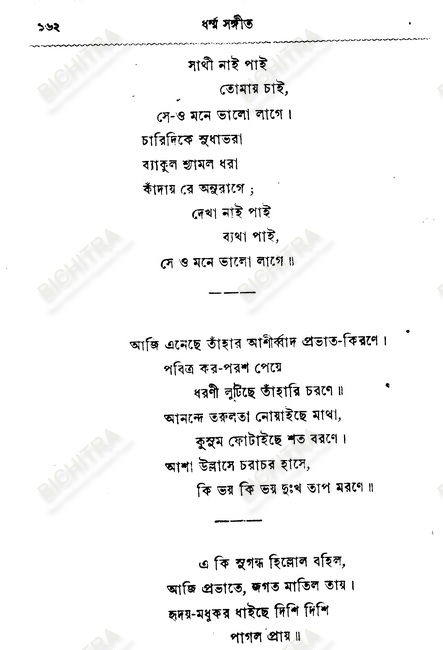 ১৬২ ধর্ম্ম সঙ্গীত
সাথী নাই পাই
তোমায় চাই,
সে-ও মনে ভালো লাগে।
চারিদিকে সুধাভরা
ব্যাকুল শ্যামল ধরা
কাঁদায় রে অনুরাগে;
দেখা নাই পাই
ব্যথা পাই,
সে ও মনে ভালো লাগে॥
আজি এনেছে তাঁহার আশীর্ব্বাদ প্রভাত-কিরণে।
পবিত্র কর-পরশ পেয়ে
ধরণী লুটিছে তাঁহারি চরণে॥
আনন্দে তরুলতা নোয়াইছে মাথা,
কুসুম ফোটাইছে শত বরণে।
আশা উল্লাসে চরাচর হাসে,
কি ভয় কি ভয় দুঃখ তাপ মরণে॥
এ কি সুগন্ধ হিল্লোল বহিল,
আজি প্রভাতে, জগত মাতিল তায়।
হৃদয়-মধুকর ধাইছে দিশি দিশি
পাগল প্রায়॥
BICHITRA